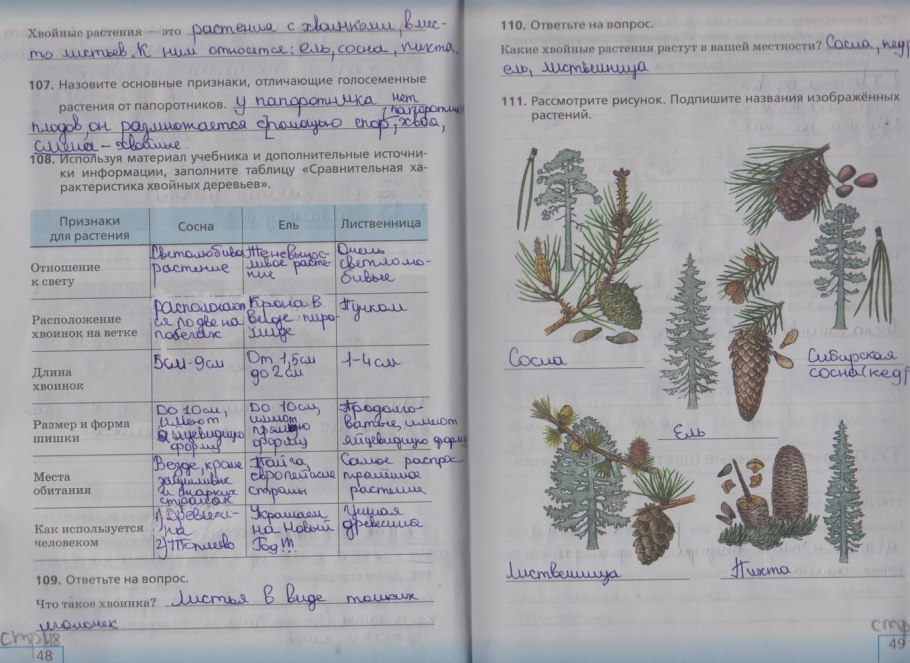 Хвойные растения — это растения с хвоинками, вмес-
то листьев. К ним относятся: ель, сосна, пихта.
107. Назовите основные признаки, отличающие голосеменные
растения от папоротников. У папоротника нет
плодов, он размножается спор,
хвоя,
семена - хвойные.
108. Используя материал учебника и дополнительные источни-
ки информации, заполните таблицу «Сравнительная ха-
рактеристика хвойных деревьев».
Признаки для растения Сосна Ель Лиственница
Отношение
к свету
Светолюбивое
растение
растение
Очень
светолюбивые
Расположение
хвоинок на ветке
Располагают
ся по две на
побегах
Крона в
виде пира-
миде
Пучком
Длина
хвоинок
5см-9см
От 1,5см
до 2см
1-4см
Размер и форма
шишки
До 10см,
имеют
яйцевидную
форму
До 10см,
имеют
прямую
форму
Продолго-
ватые, имеют
яйцевидную форму
Места
обитания
Везде, кроме
засушливых
и жарких
странах
Тайга,
европейские
страны
Самое распрос-
транённое
растение
Как используется
человеком
1) Древеси-
на
2) Топливо
Украшаем
на Новый
Год!!!
Ценная
древесина
109. Ответьте на вопрос.
Что такое хвоинка? Листья в виде тонких
иголочек
стр48
48
110. Ответьте на вопрос.
Какие хвойные растения растут в вашей местности? Сосна, кедр
ель, лиственница
111. Рассмотрите рисунок. Подпишите названия изображённых
растений.
Сосна
Сибирская
сосна (кедр
Ель
Лиственница
Пихта
стр
49